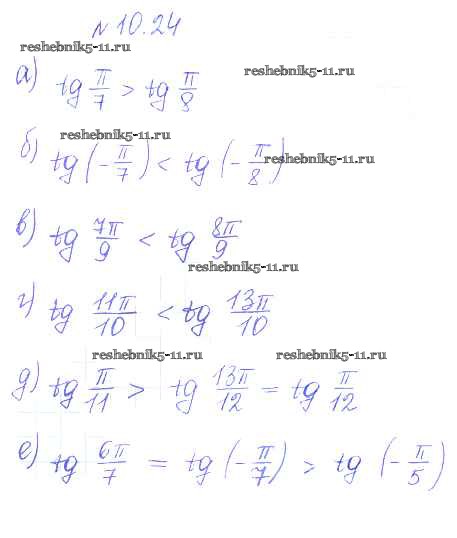 № 10.24
reshebnik5-11.ru
reshebnik5-11.ru
а) tg π/7 > tg π/8
reshebnik5-11.ru
б) tg (-π/7) < tg (-π/8)
reshebnik5-11.ru
в) tg 7π/9 < tg 8π/9
reshebnik5-11.ru
г) tg 11π/10 < tg 13π/10
reshebnik5-11.ru reshebnik5-11.ru
д) tg π/11 > tg 13π/12 = tg π/12
е) tg 6π/7 = tg (-π/7) > tg (-π/5)